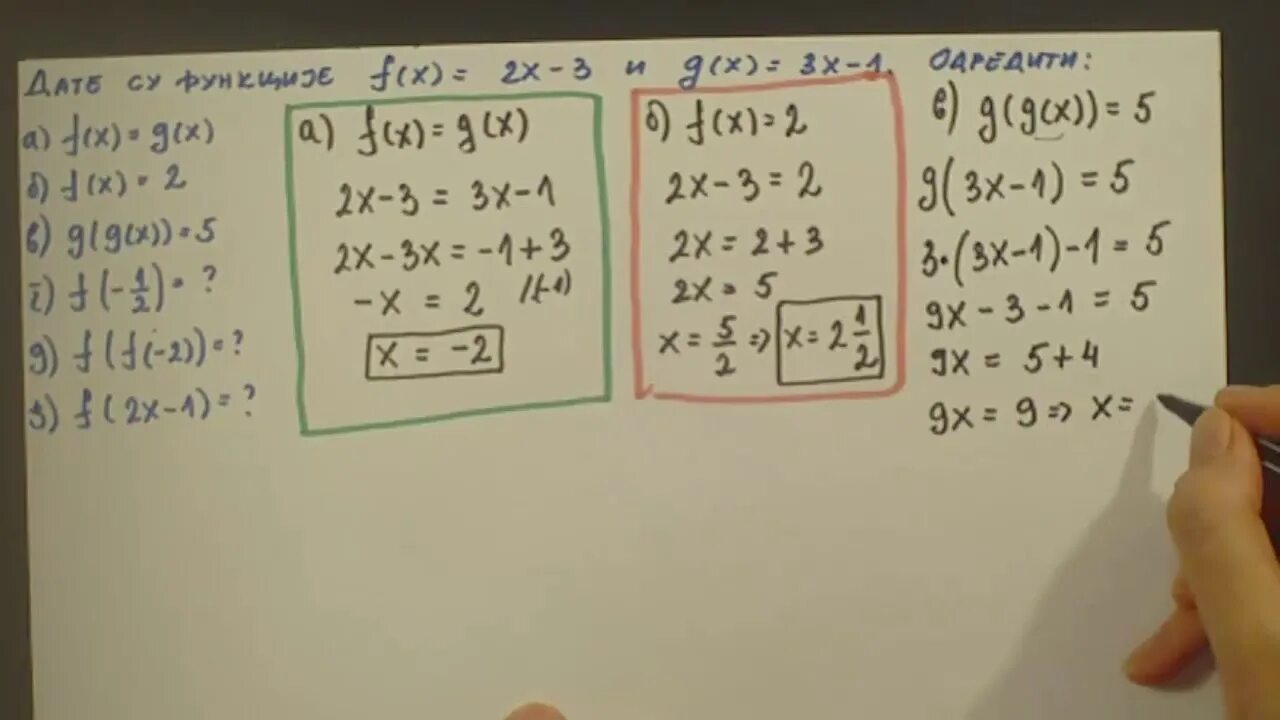 ДАТЕ СУ ФУНКЦИЈЕ f(x) = 2x-3 и g(x) = 3x-1. ОДРЕДИТИ:
а) f(x) = g(x)
б) f(x) = 2
в) g(g(x)) = 5
г) f(-1/2) = ?
д) f(f(-2)) = ?
ђ) f(2x-1) = ?
а) f(x) = g(x)
2x-3 = 3x-1
2x-3x = -1+3
-x = 2 /(-1)
x = -2
б) f(x) = 2
2x-3 = 2
2x = 2+3
2x = 5
x = 5/2 => x = 2 1/2
в) g(g(x)) = 5
g(3x-1) = 5
3·(3x-1)-1 = 5
9x-3-1 = 5
9x = 5+4
9x = 9 => x =